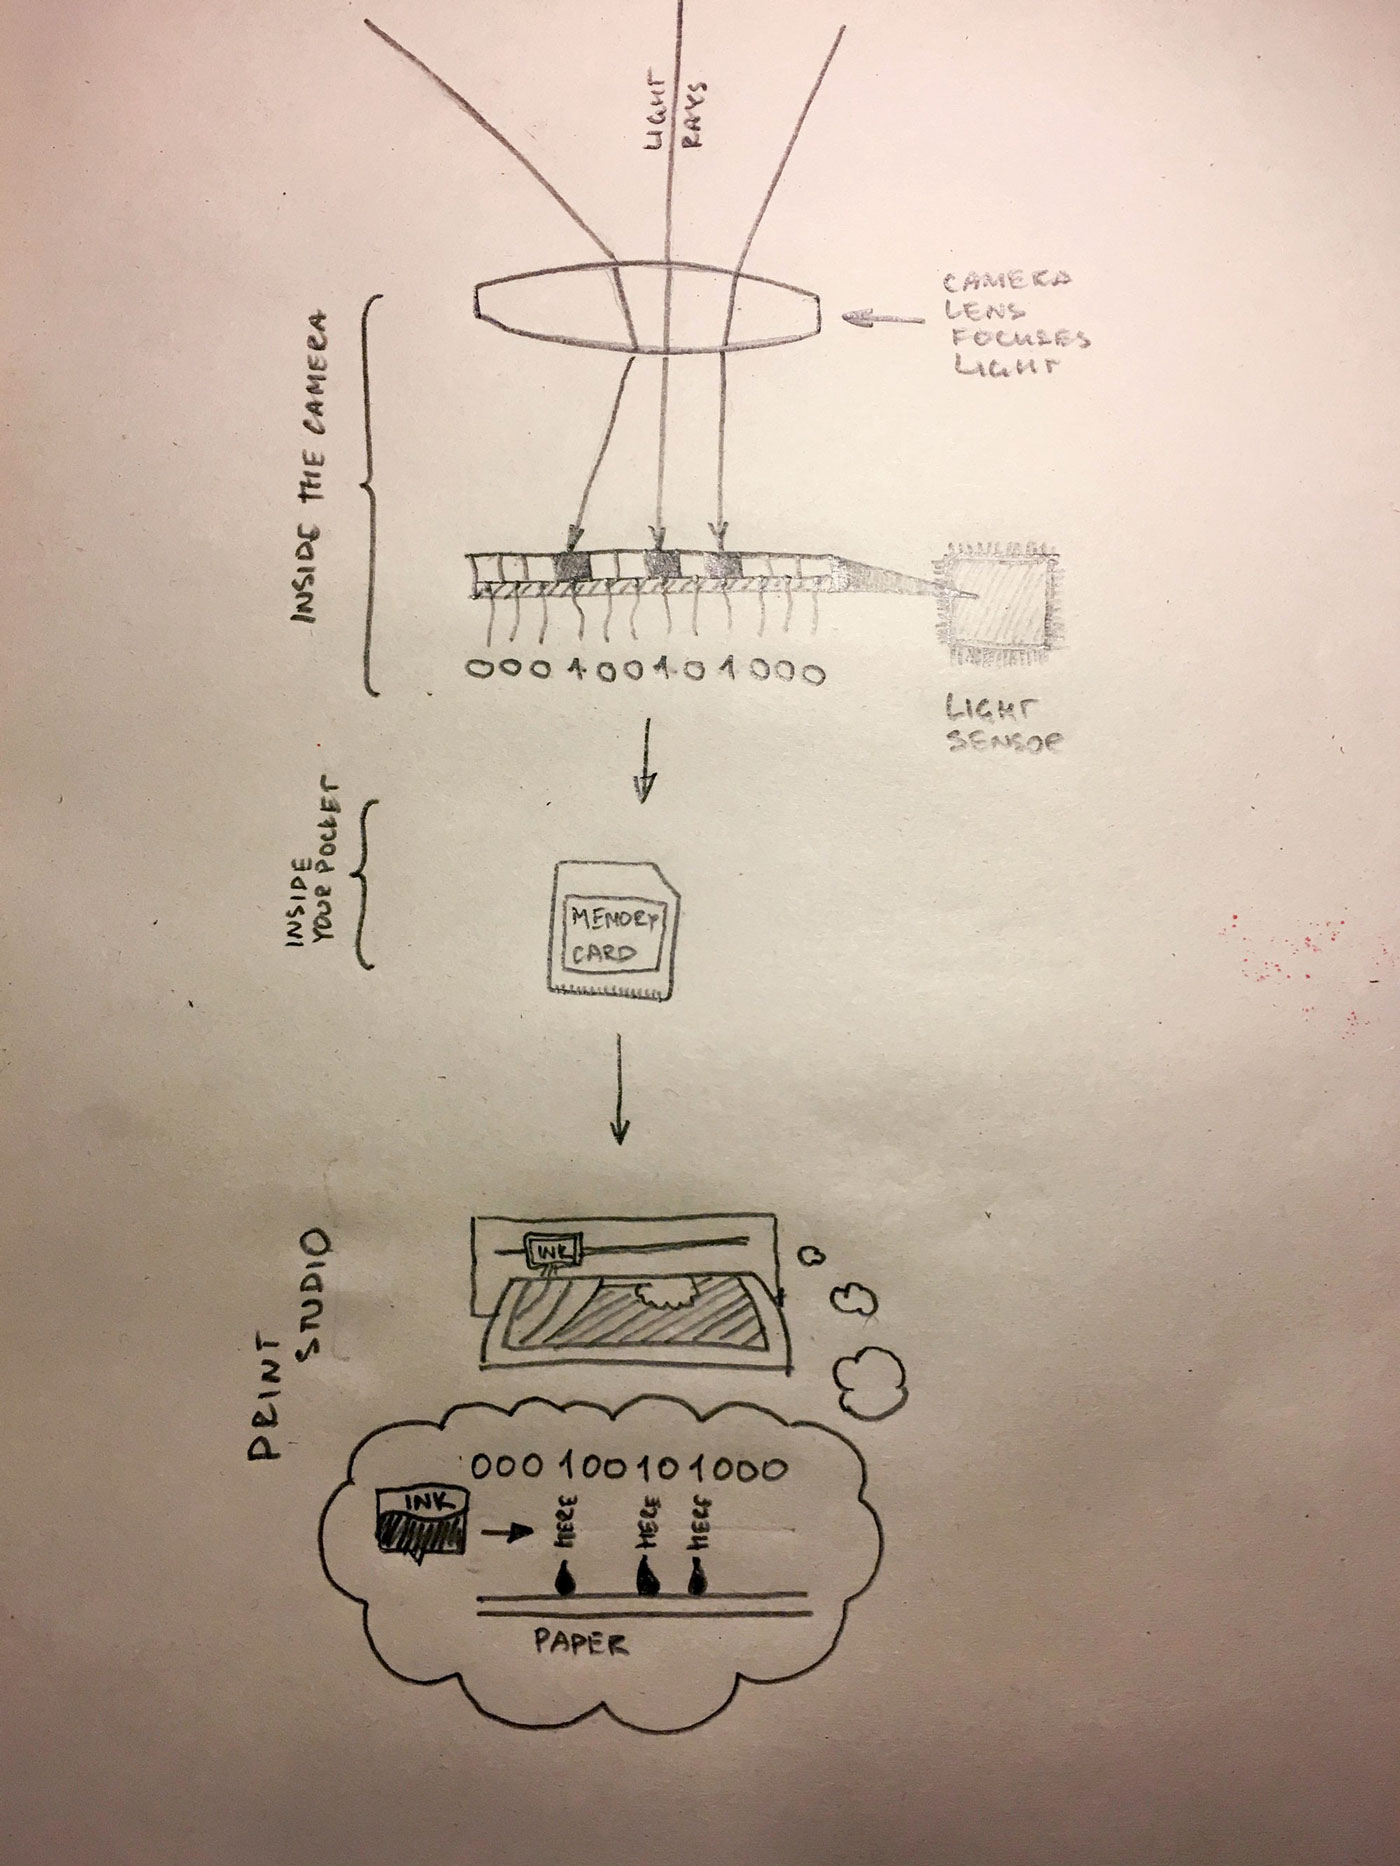 LIGHT
RAYS
CAMERA
LENS
FOCUSES
LIGHT
INSIDE THE CAMERA
000100101000
LIGHT
SENSOR
INSIDE
YOUR POCKET
MEMORY
CARD
PRINT
STUDIO
INK
000100101000
INK
HERE
HERE
HERE
PAPER